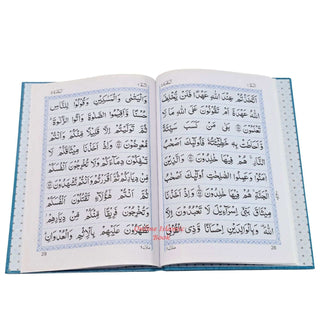 اَتَّخَذْتُمْ عِنْدَ اللهِ عَهْدًا فَلَنْ يُّخْلِفَ
اللهُ عَهْدَهٗٓ اَمْ تَقُوْلُوْنَ عَلَى اللهِ مَا لَا
تَعْلَمُوْنَ بَلٰى مَنْ كَسَبَ سَيِّئَةً
وَّاَحَاطَتْ بِهٖ خَطِيْٓئَتُهٗ فَاُولٰٓئِكَ اَصْحٰبُ
النَّارِ هُمْ فِيْهَا خٰلِدُوْنَ وَالَّذِيْنَ
اٰمَنُوْا وَعَمِلُوا الصّٰلِحٰتِ اُولٰٓئِكَ اَصْحٰبُ
الْجَنَّةِ هُمْ فِيْهَا خٰلِدُوْنَ وَاِذْ اَخَذْنَا
مِيْثَاقَ بَنِيْٓ اِسْرَآءِيْلَ لَا تَعْبُدُوْنَ اِلَّا
اللهَ وَبِالْوَالِدَيْنِ اِحْسَانًا وَّذِي الْقُرْبٰى
26
وَالْيَتٰمٰى وَالْمَسٰكِيْنِ وَقُوْلُوْا لِلنَّاسِ
حُسْنًا وَّاَقِيْمُوا الصَّلٰوةَ وَاٰتُوا الزَّكٰوةَ
ثُمَّ تَوَلَّيْتُمْ اِلَّا قَلِيْلًا مِّنْكُمْ وَاَنْتُمْ
مُّعْرِضُوْنَ وَاِذْ اَخَذْنَا مِيْثَاقَكُمْ لَا
تَسْفِكُوْنَ دِمَآءَكُمْ وَلَا تُخْرِجُوْنَ اَنْفُسَكُمْ
مِّنْ دِيَارِكُمْ ثُمَّ اَقْرَرْتُمْ وَاَنْتُمْ تَشْهَدُوْنَ
ثُمَّ اَنْتُمْ هٰٓؤُلَآءِ تَقْتُلُوْنَ اَنْفُسَكُمْ
وَتُخْرِجُوْنَ فَرِيْقًا مِّنْكُمْ مِّنْ دِيَارِهِمْ
تَظٰهَرُوْنَ عَلَيْهِمْ بِالْاِثْمِ وَالْعُدْوَانِ